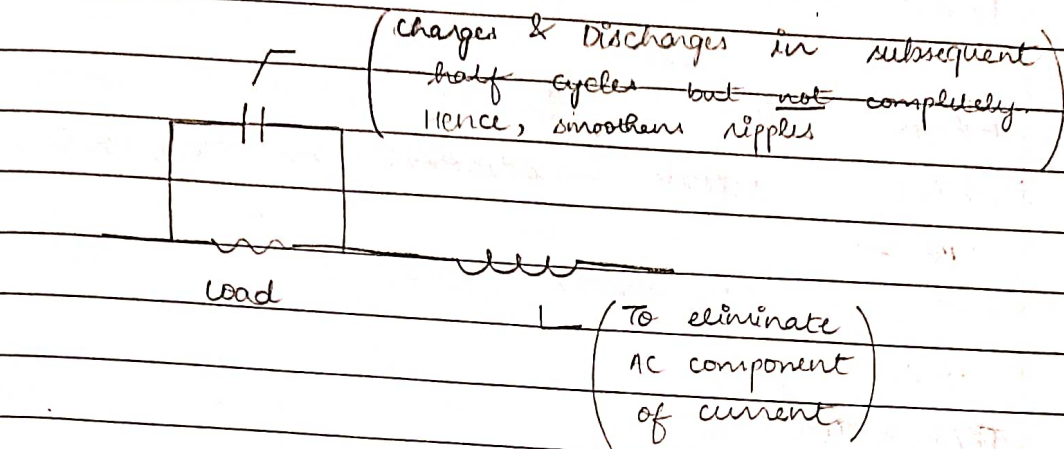 Charges & Discharges in subsequent
half cycles but not completely.
Hence, smoothens ripples
Load
To eliminate
AC component
of current.